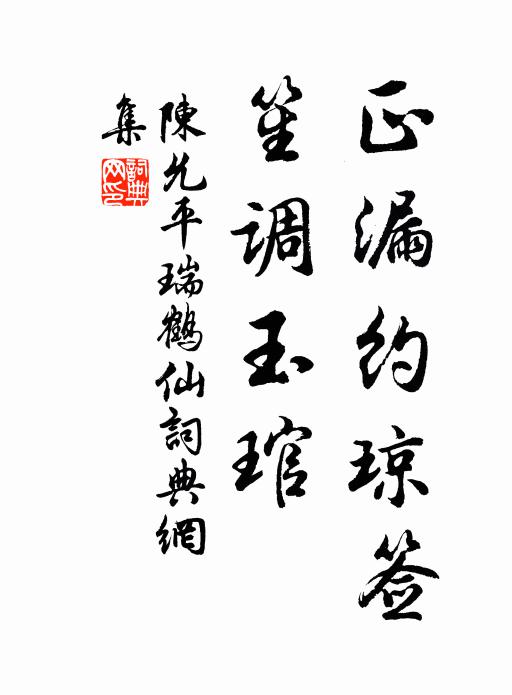 正漏约琼签
笙调玉琯
陳允平瑞鶴仙詞典網
集
詞典
网印